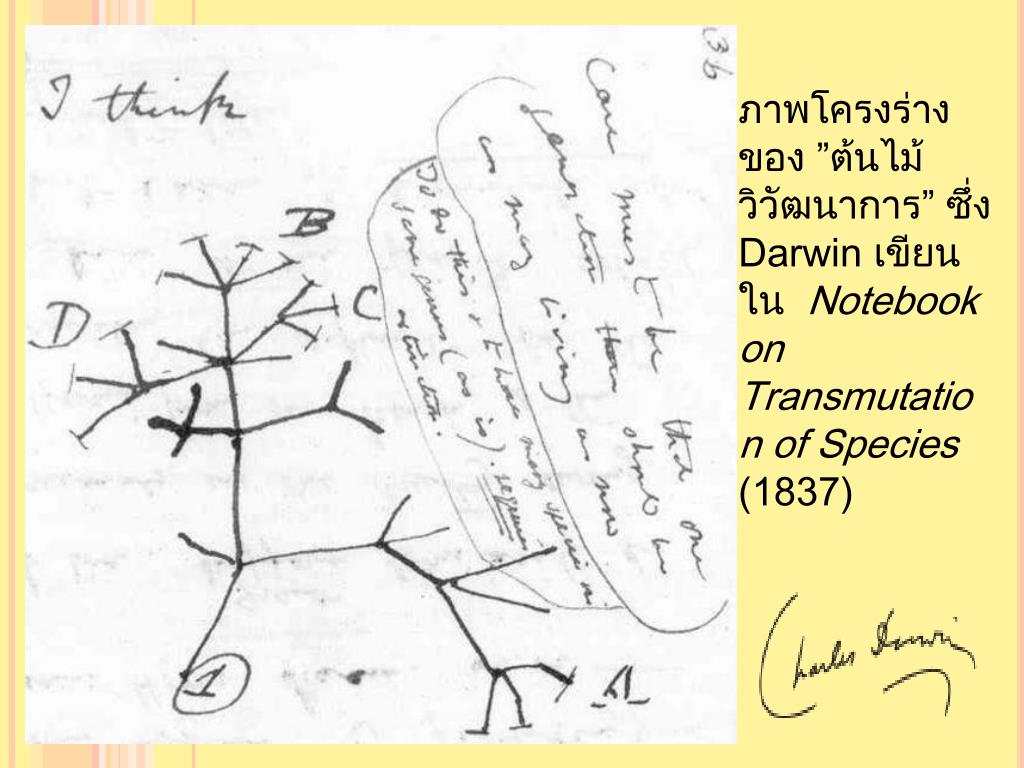 36
I think
Case must be that one
generation then should be
as many living as now
To do this & to have many species in
same genus (as is). requires
extinction.
B
C
D
A
1
ภาพโครงร่าง
ของ ”ต้นไม้
วิวัฒนาการ” ซึ่ง
Darwin เขียน
ใน Notebook
on
Transmutatio
n of Species
(1837)
Charles Darwin